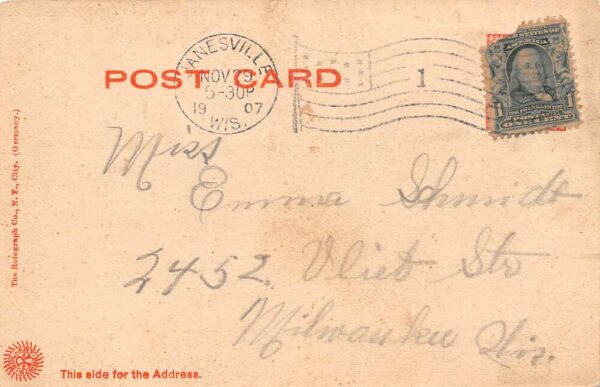 JANESVILLE
NOV 29
5-30P
19 07
WIS.
POST CARD
1
UNITED STATES OF AMERICA
FRANKLIN
POSTAGE
1 ONE CENT 1
Miss
Emma Schmidt
2452. Vliet Str
Milwaukee Wis.
The Rotograph Co., N. Y. City. (Germany.)
This side for the Address.